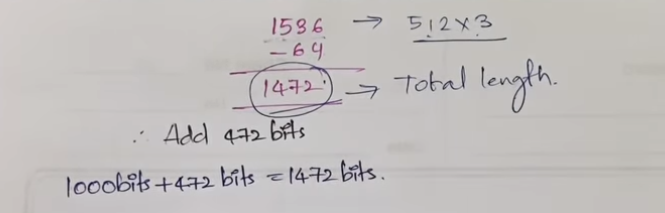 1536 → 512×3
-64
1472 → Total length.
∴ Add 472 bits
1000bits+472 bits =1472 bits.